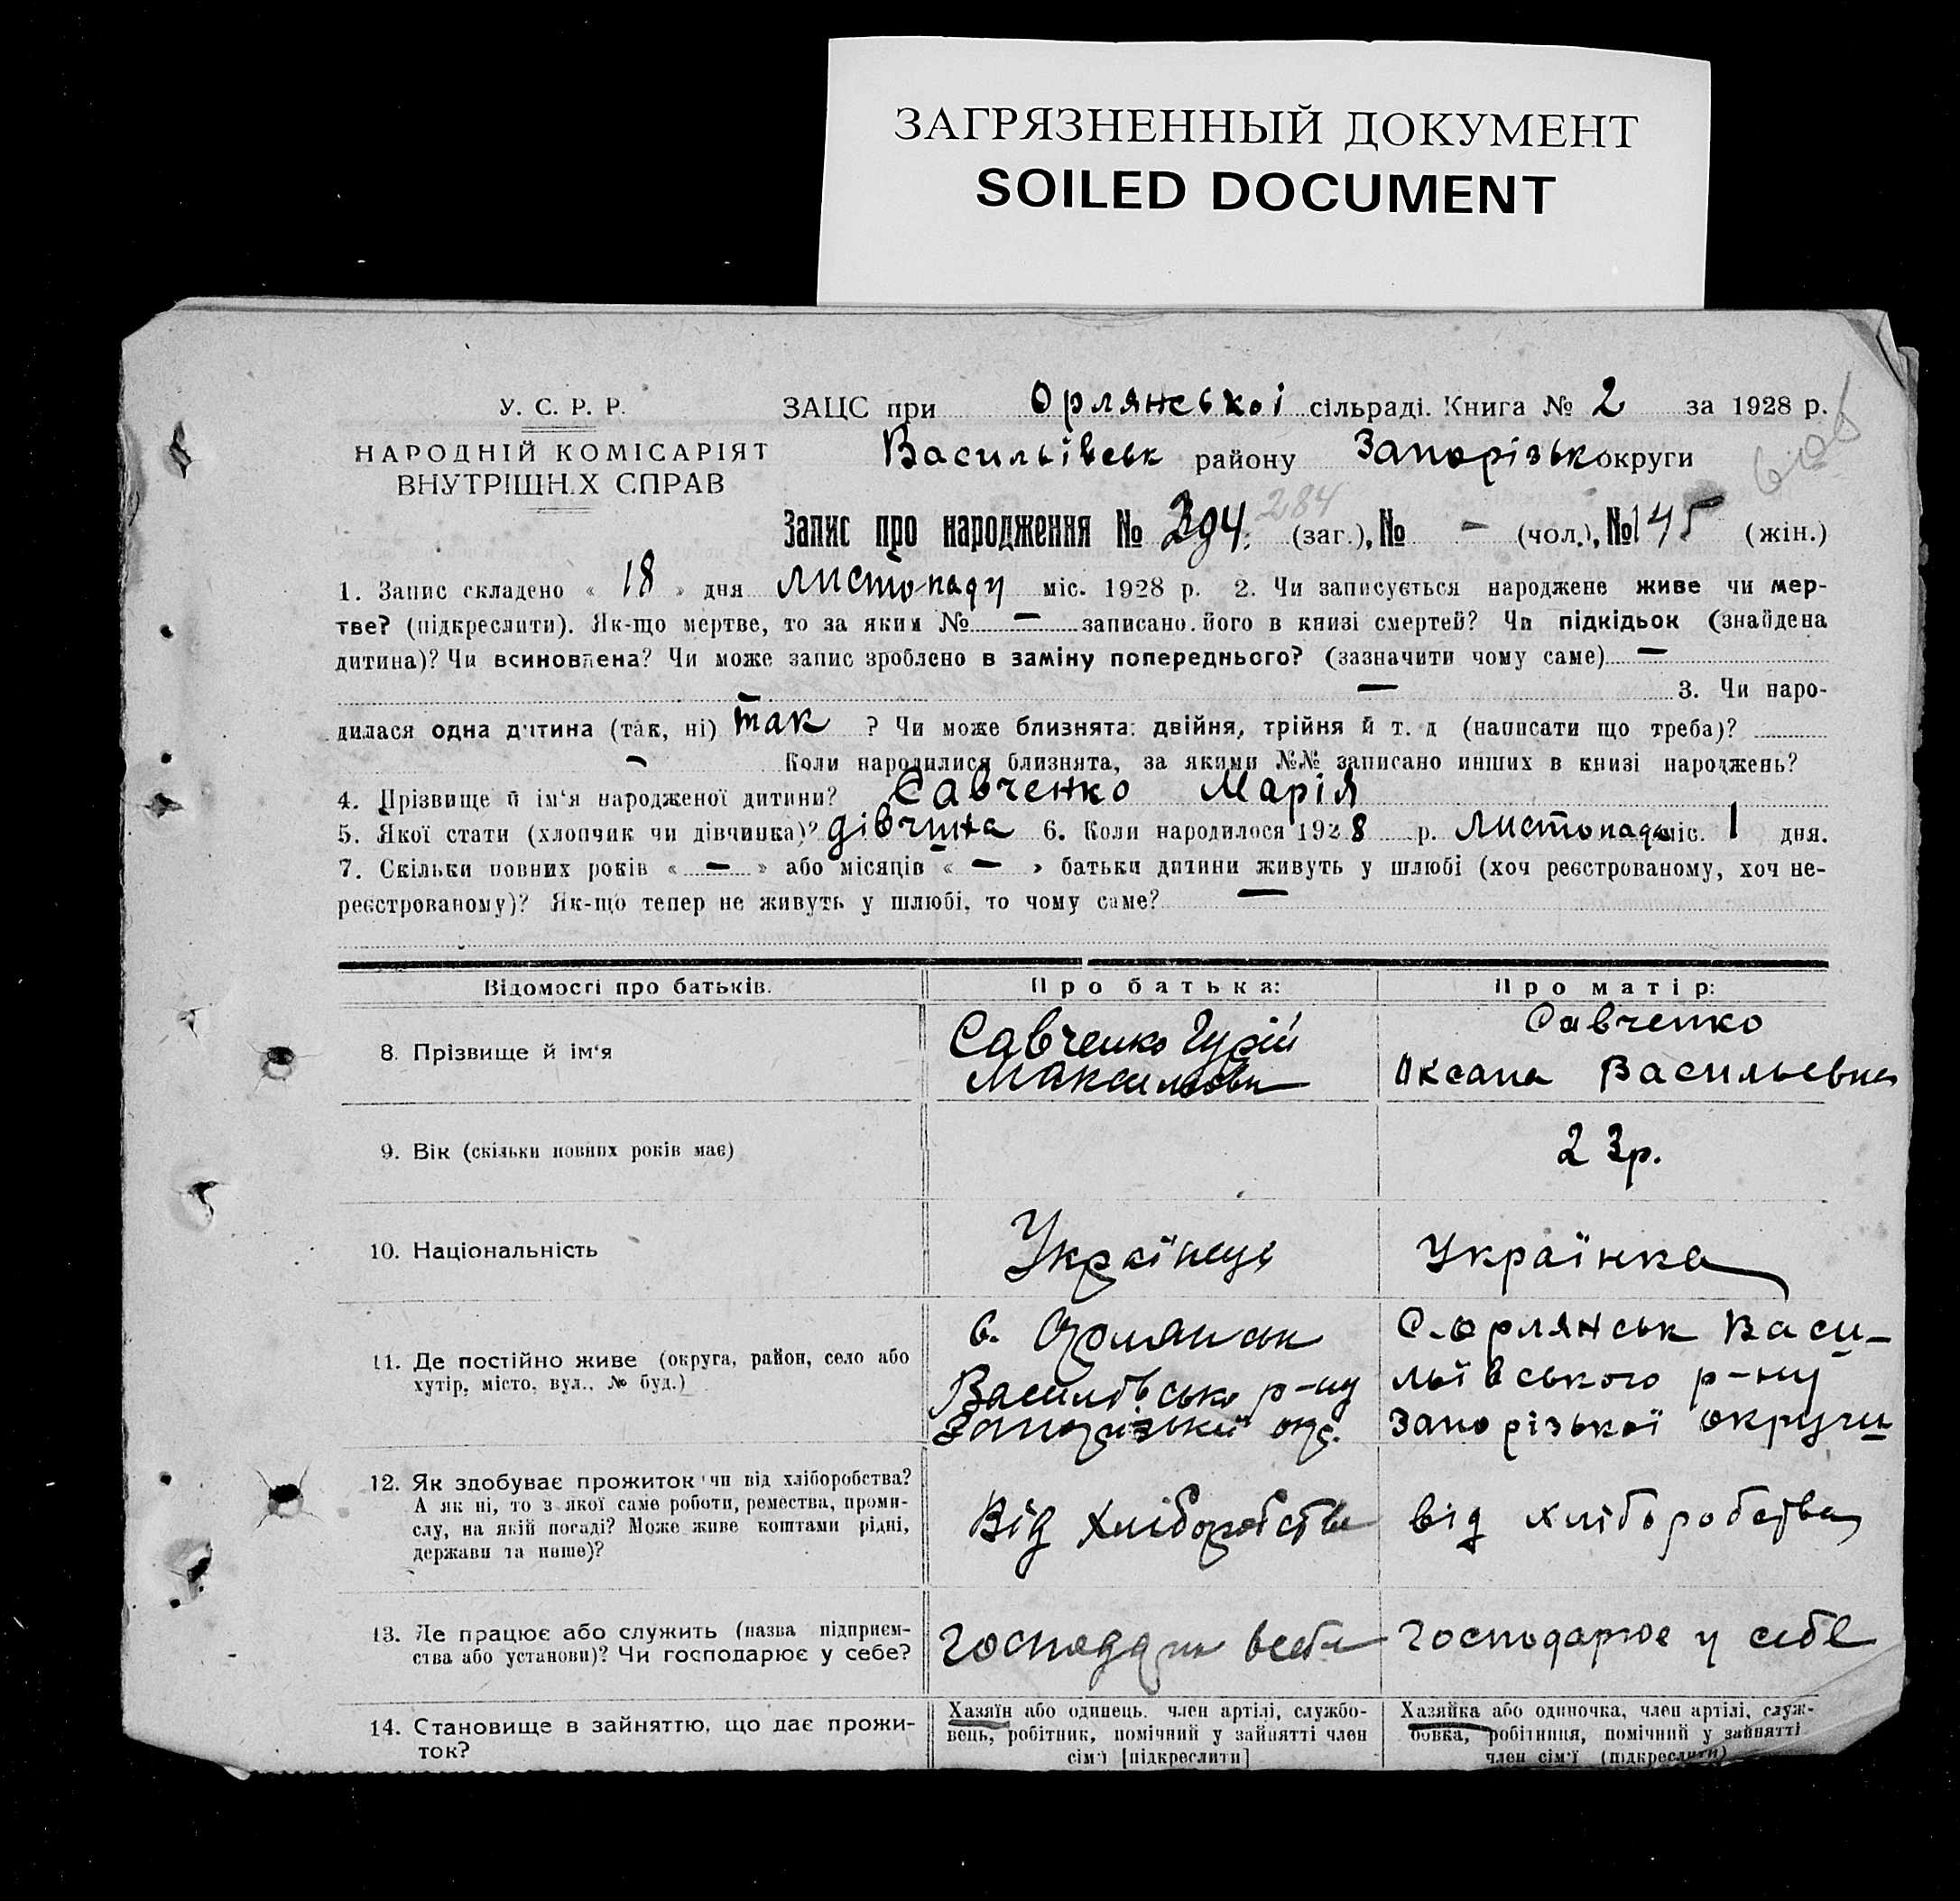 ЗАГРЯЗНЕННЫЙ ДОКУМЕНТ
SOILED DOCUMENT
У. С. Р. Р.
НАРОДНІЙ КОМІСАРІЯТ
ВНУТРІШН.Х СПРАВ
ЗАЦС при Орлянської сільраді. Книга № 2 за 1928 р.
Васильівськ району Запорізьк округи
Запис про народження № 294. 284 (заг.), № - (чол.), № 145 (жін.)
1. Запис складено « 18 » дня листопаду міс. 1928 р. 2. Чи записується народжене живе чи мер-
тве? (підкреслити). Як-що мертве, то за яким № — записано його в книзі смертей? Чи підкідьок (знайдена
дитина)? Чи всиновлена? Чи може запис зроблено в заміну попереднього? (зазначити чому саме) —
— 3. Чи наро-
дилася одна дитина (так, ні) так ? Чи може близнята: двійня, трійня й т. д (написати що треба)?
— Коли народилися близнята, за якими №№ записано инших в книзі народжень?
4. Прізвище й ім'я народженої дитини? Савченко Марія
5. Якої стати (хлопчик чи дівчинка)? дівчина 6. Коли народилося 1928 р. Листопада міс. 1 дня.
7. Скільки повних років « — » або місяців « — » батьки дитини живуть у шлюбі (хоч реєстрованому, хоч не-
реєстрованому)? Як-що тепер не живуть у шлюбі, то чому саме? —
Відомості про батьків. Про батька: Про матір:
8. Прізвище й ім'я
Савченко Гурій
Савченко
Оксана Васильевна
9. Вік (скільки повних років має)
23р.
10. Національність
Українець
Українка
11. Де постійно живе (округа, район, село або
хутір, місто, вул., № буд.)
с. Орлянськ
Василівсько р-ну
Запорізької окр.
С. Орлянськ Васи-
льївського р-ну
Запорізької округи
12. Як здобуває прожиток чи від хліборобства?
А як ні, то з якої саме роботи, ремества, проми-
слу, на якій посаді? Може живе коштами рідні,
держави та инше)?
Від хліборобства
від хліборобства
13. Де працює або служить (назва підприєм-
ства або установи)? Чи господарює у себе?
Господарює у себе
14. Становище в зайняттю, що дає прожи-
ток?
Хазяїн або одинець. член артілі, службо-
вець, робітник, помічний у зайнятті член
сім'ї [підкреслити]
Хазяйка або одиночка, член артілі, служ-
бовка, робітниця, помічний у зайнятті
член сім'ї (підкреслити)